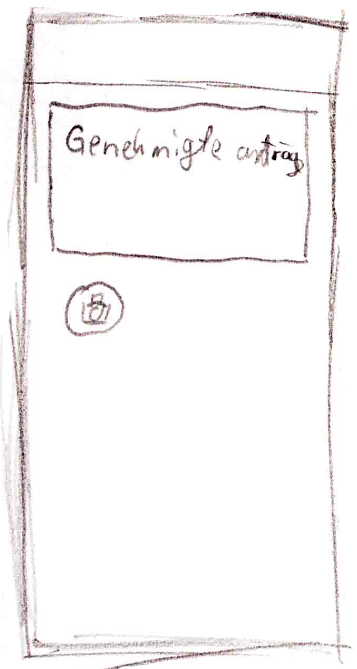 Genehmigte antrag